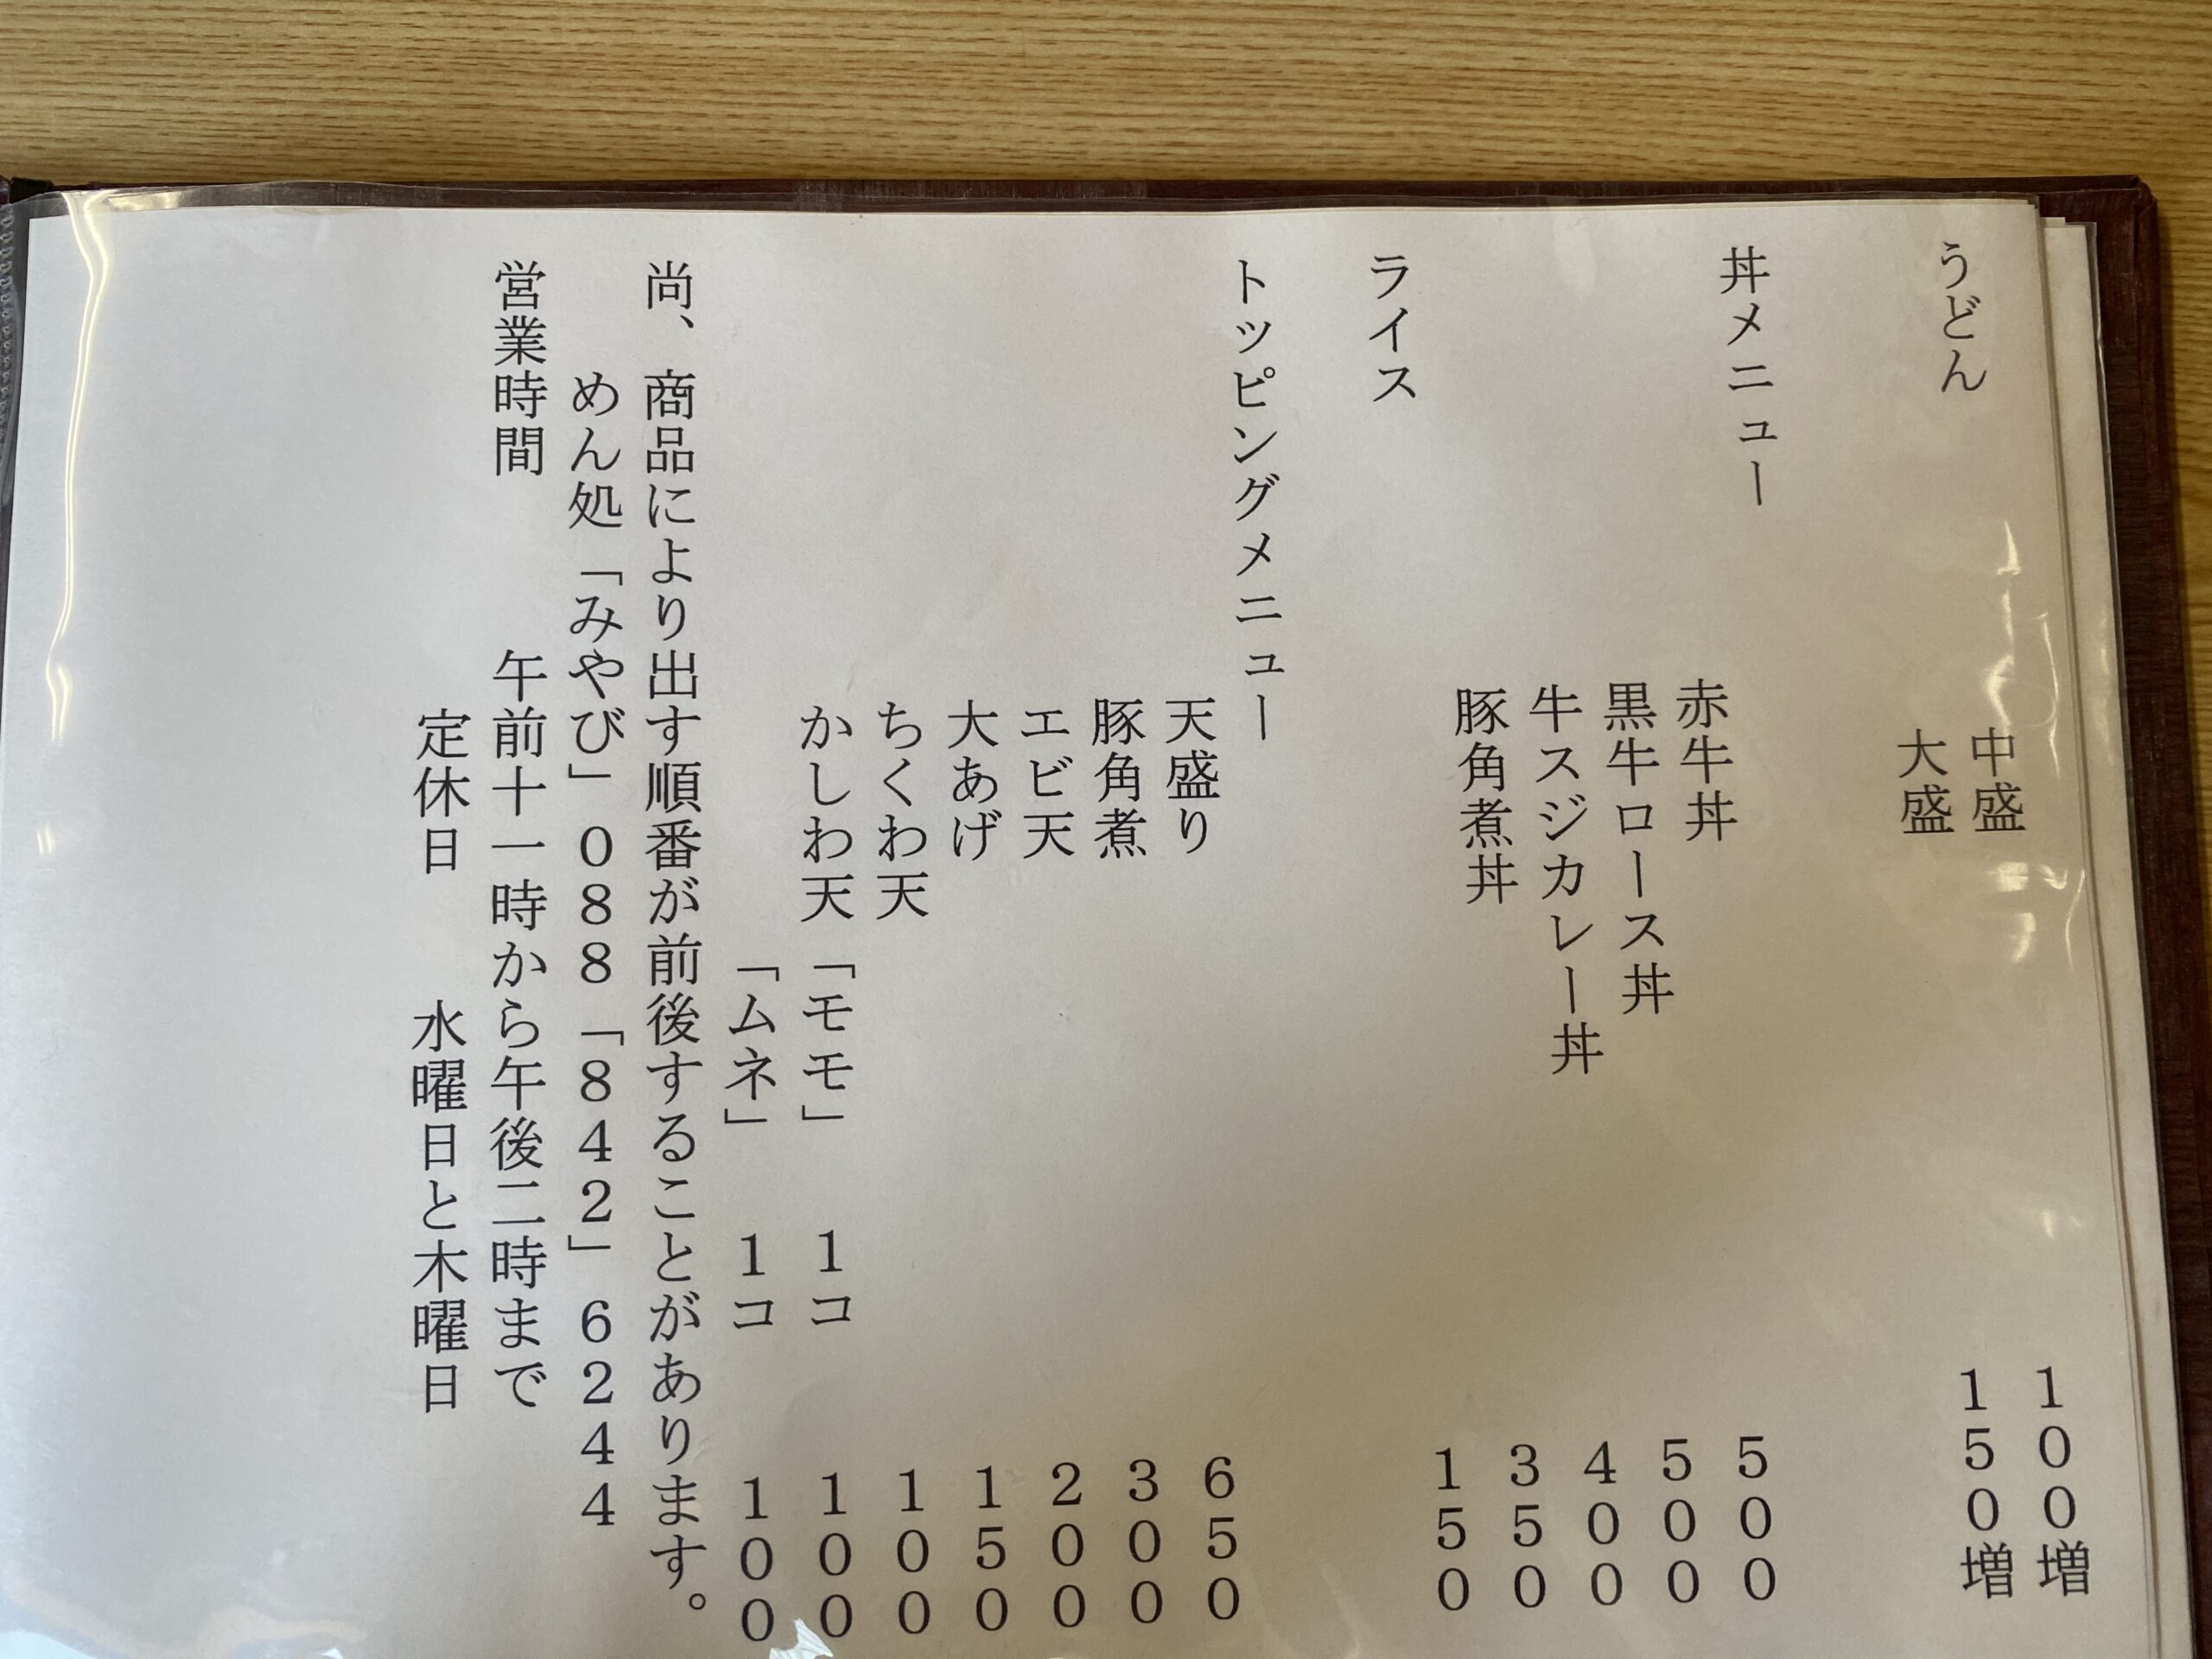 うどん
中盛 100増
大盛 150増
丼メニュー
赤牛丼 500
黒牛ロース丼 500
牛スジカレー丼 400
豚角煮丼 350
ライス 150
トッピングメニュー
天盛り 650
豚角煮 300
エビ天 200
大あげ 150
ちくわ天 100
かしわ天「モモ」 1コ 100
「ムネ」 1コ 100
尚、商品により出す順番が前後することがあります。
めん処「みやび」088「842」6244
営業時間 午前十一時から午後二時まで
定休日 水曜日と木曜日